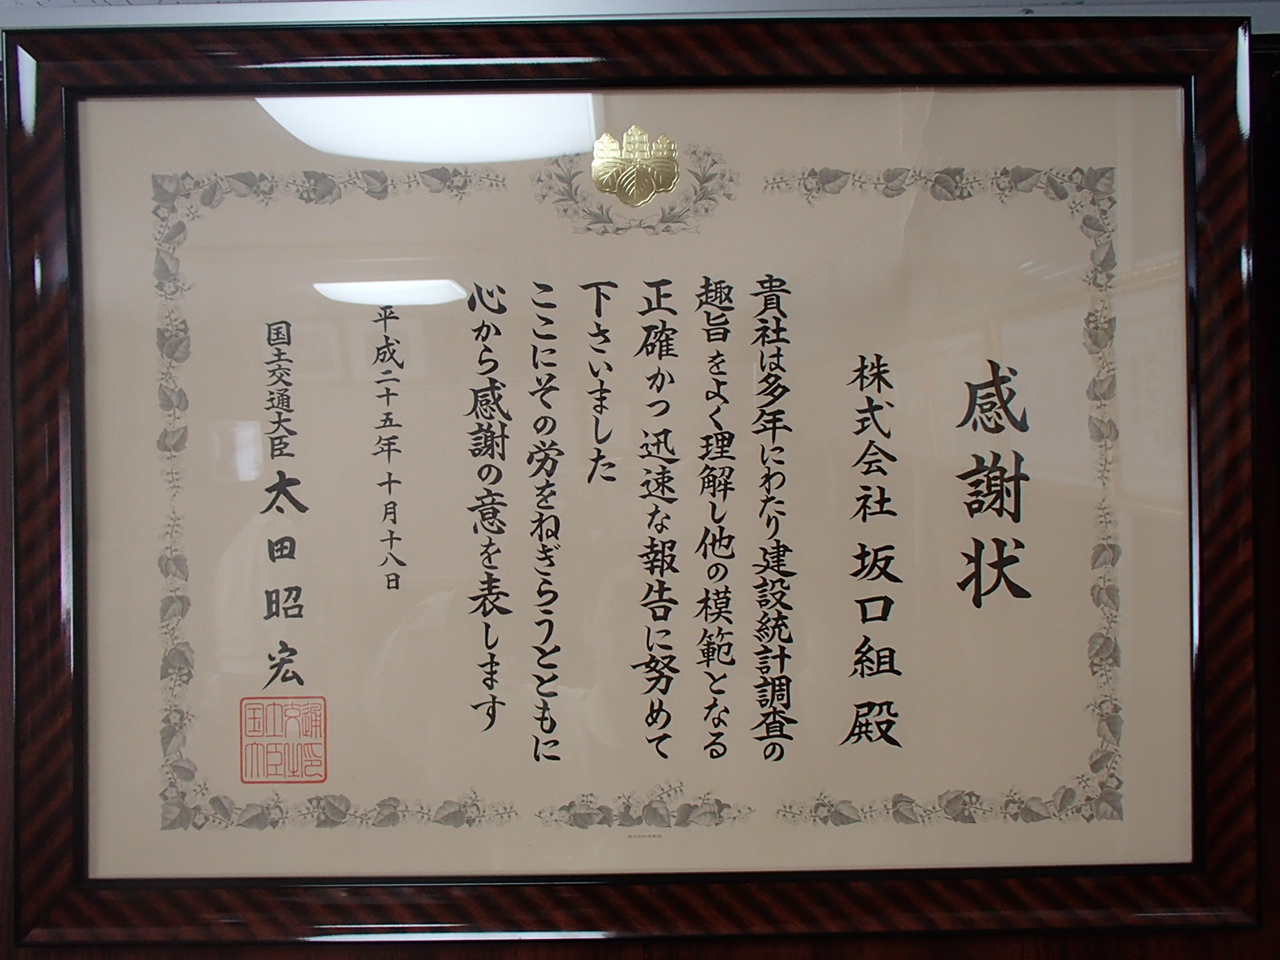 感謝状
株式会社 坂口組 殿
貴社は多年にわたり建設統計調査の
趣旨をよく理解し他の模範となる
正確かつ迅速な報告に努めて
下さいました
ここにその労をねぎらうとともに
心から感謝の意を表します
平成二十五年十月十八日
国土交通大臣 太田昭宏